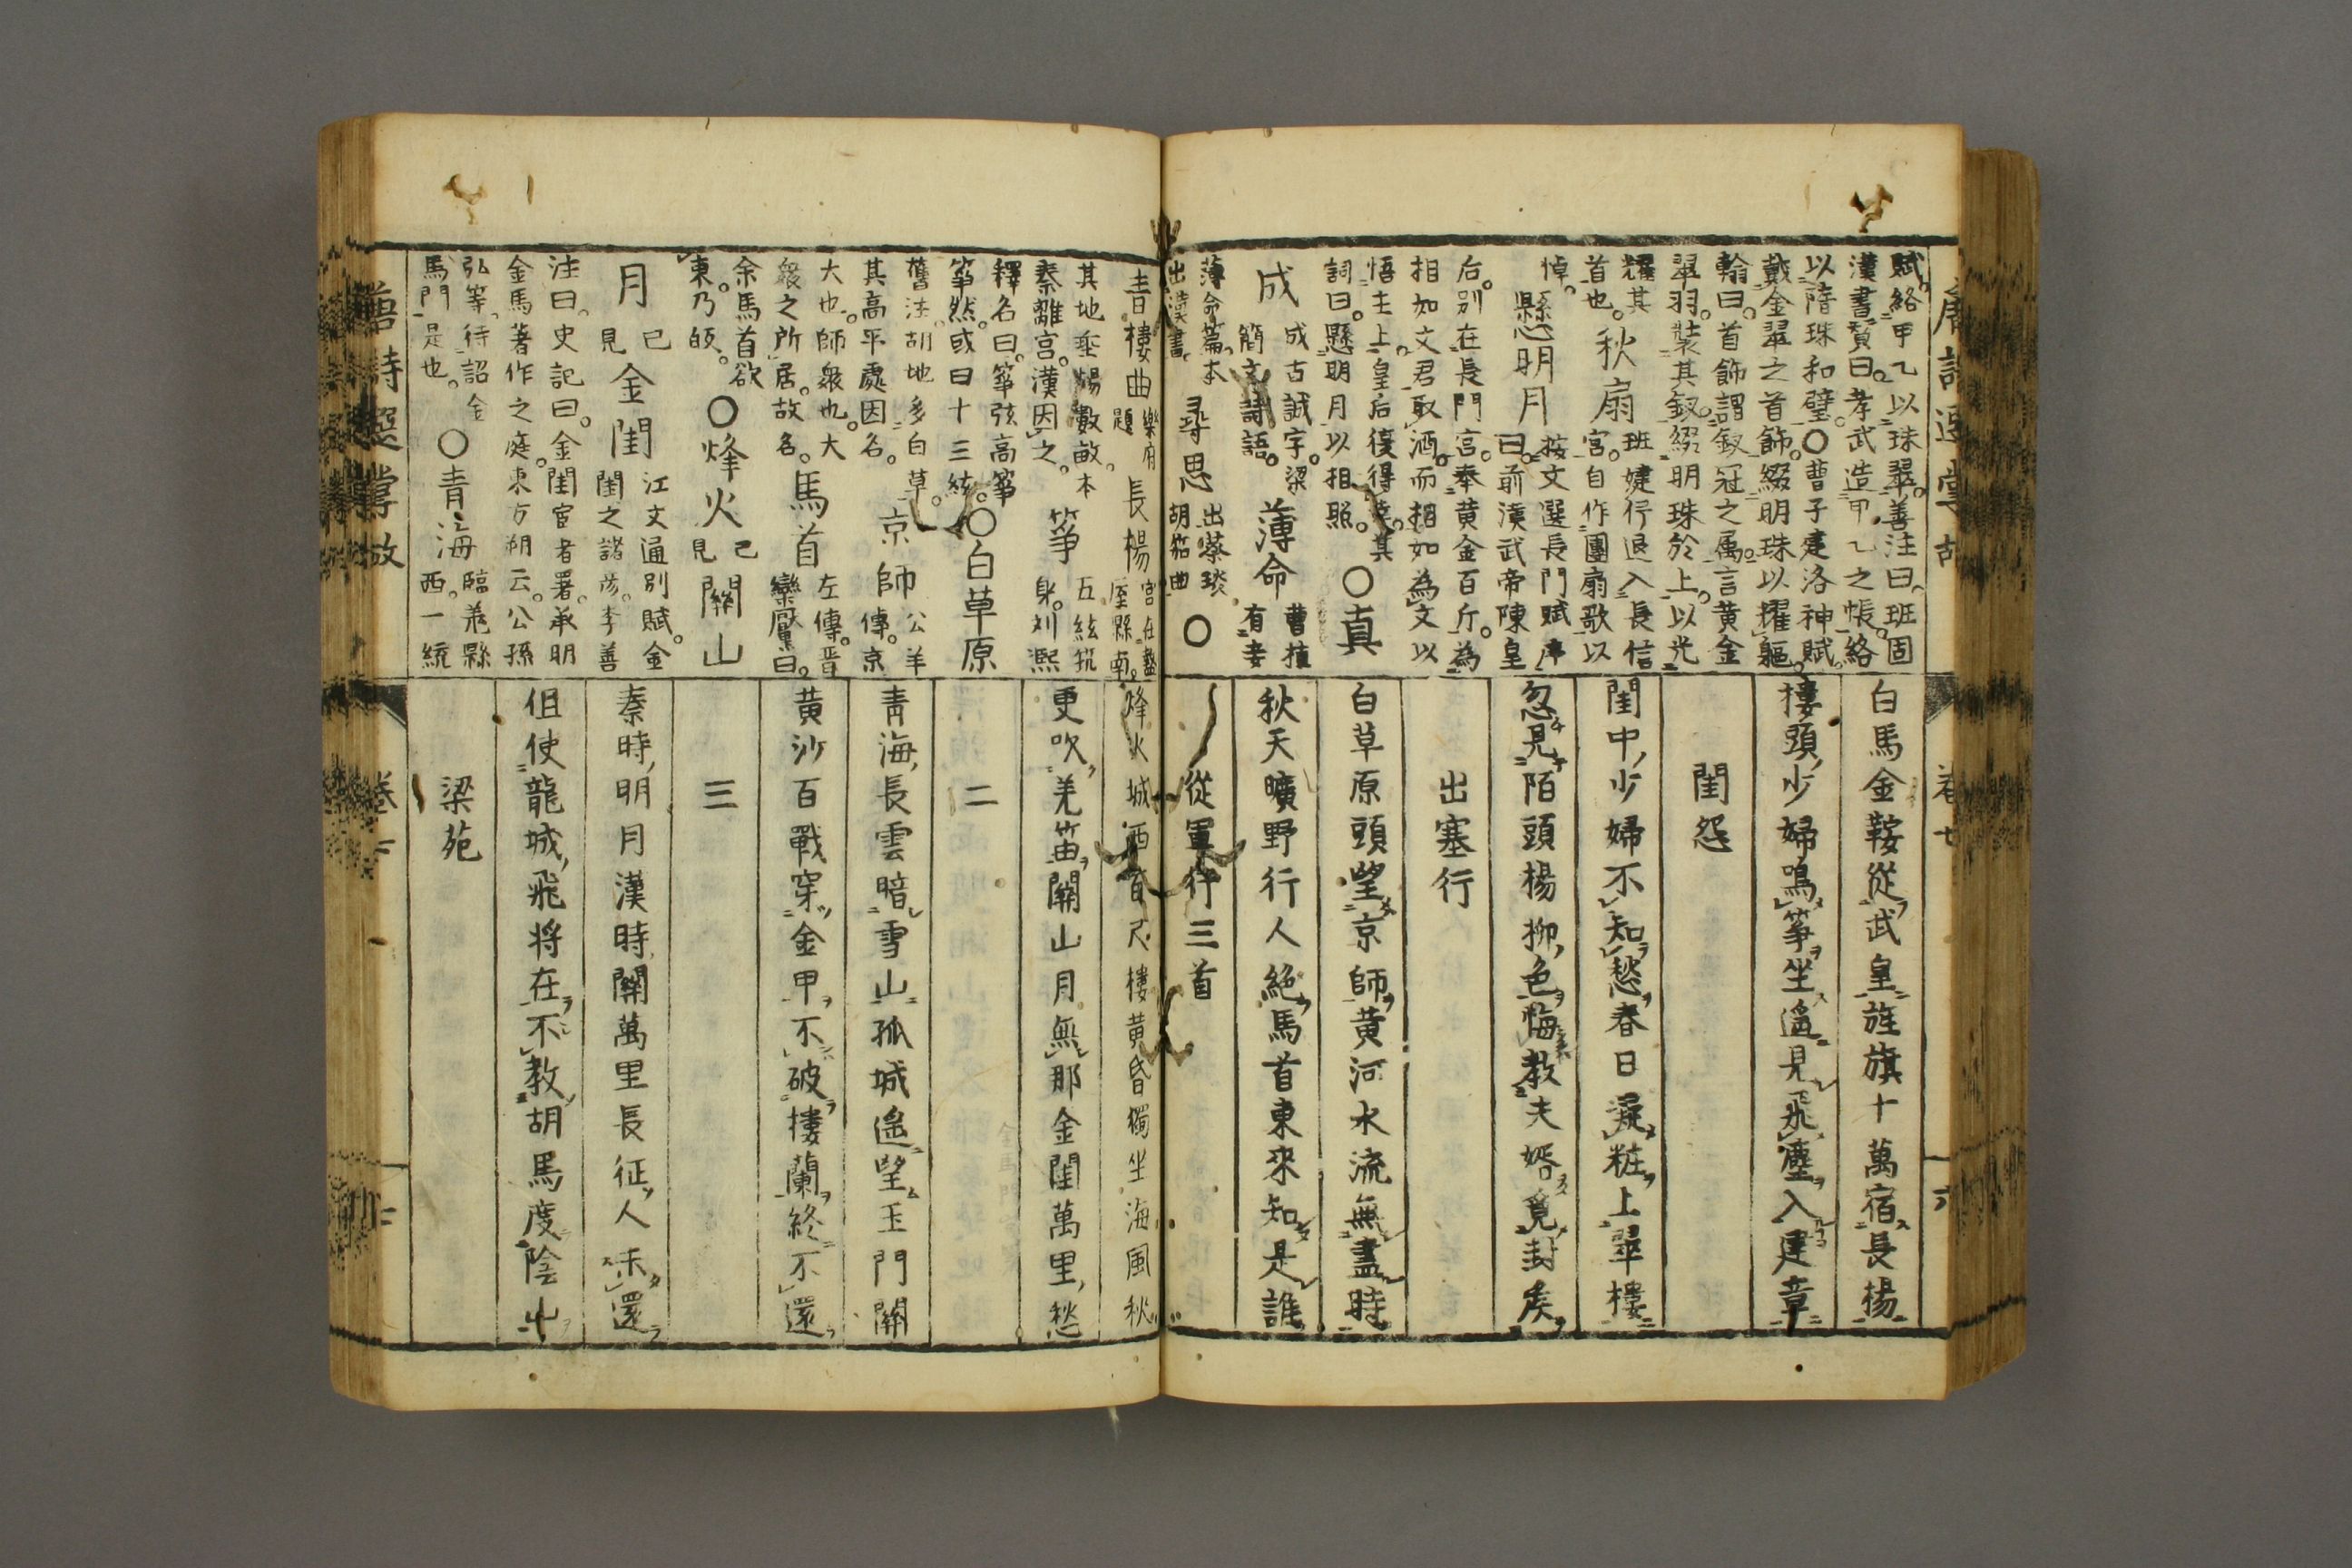 賦。絡甲乙以珠翠。善注曰、班固
漢書賛曰。孝武造甲乙之帳。絡
以隋珠和璧。〇曹子建洛神賦。
戴金翠之首飾。綴明珠以耀軀。
翰曰。首飾謂釵冠之属。言黄金
翠羽。裝其釵。綴明珠於上。以光
耀其
首也。
秋扇
班婕伃退入長信
宮。自作團扇歌以
悼。
懸明月
按文選長門賦序
曰。前漢武帝陳皇
后。別在長門宮。奉黄金百斤。為
相如文君取酒。而相如為文以
悟主上。皇后復得幸。其
詞曰。懸明月以相照。
〇真
成
成古誠字。梁
簡文詩語。
薄命
曹植
有妾
薄命篇。本
出漢書。
尋思
出蔡琰
胡笳曲
〇
白馬金鞍從武皇旌旗十萬宿長楊
樓頭少婦鳴箏坐遙見飛塵入建章
閨怨
閨中少婦不知愁春日凝粧上翠樓
忽見陌頭楊柳色悔教夫婿覓封矦
出塞行
白草原頭望京師黄河水流無盡時
秋天曠野行人絶馬首東來知是誰
從軍行三首
青樓曲
樂府
題
長楊
宮在盩
厔縣南。
其地垂楊數畝。本
秦離宮。漢因之。
箏
五絃筑
身。刘熙
釋名曰。箏弦高箏
箏然。或曰十三絃。
〇白草原
舊注。胡地多白草。
其高平處因名。
京師
公羊
傳。京
大也。師衆也。大
衆之所居。故名。
馬首
左傳。晋
欒黶曰。
余馬首欲
東。乃皈。
〇烽火
已
見
關山
月
已
見
金閨
江文通別賦。金
閨之諸彦。李善
注曰。史記曰。金閨宦者署。承明
金馬著作之庭。東方朔云。公孫
弘等。待詔金
馬門是也。
〇青海
臨羗縣
西。一統
烽火城西百尺樓黄昏獨坐海風秋
更吹羌笛關山月無那金閨萬里愁
二
青海長雲暗雪山孤城遙望玉門關
黄沙百戰穿金甲不破樓蘭終不還
三
秦時明月漢時關萬里長征人未還
但使龍城飛将在不教胡馬度陰山
梁苑
唐詩選掌故